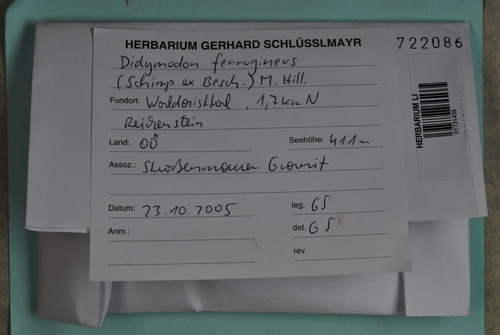 HERBARIUM GERHARD SCHLÜSSLMAYR
722086
Didymodon ferrugineus
(Schimp ex Besch.) M. Hill.
Fundort: Waldaisttal, 1,7 km N
Reichenstein
Land: OÖ Seehöhe: 411m
Assoz.: Straßenmauer Granit
Datum: 23.10.2005 leg. GS
Anm.: det. GS
rev.
HERBARIUM LI
01731439